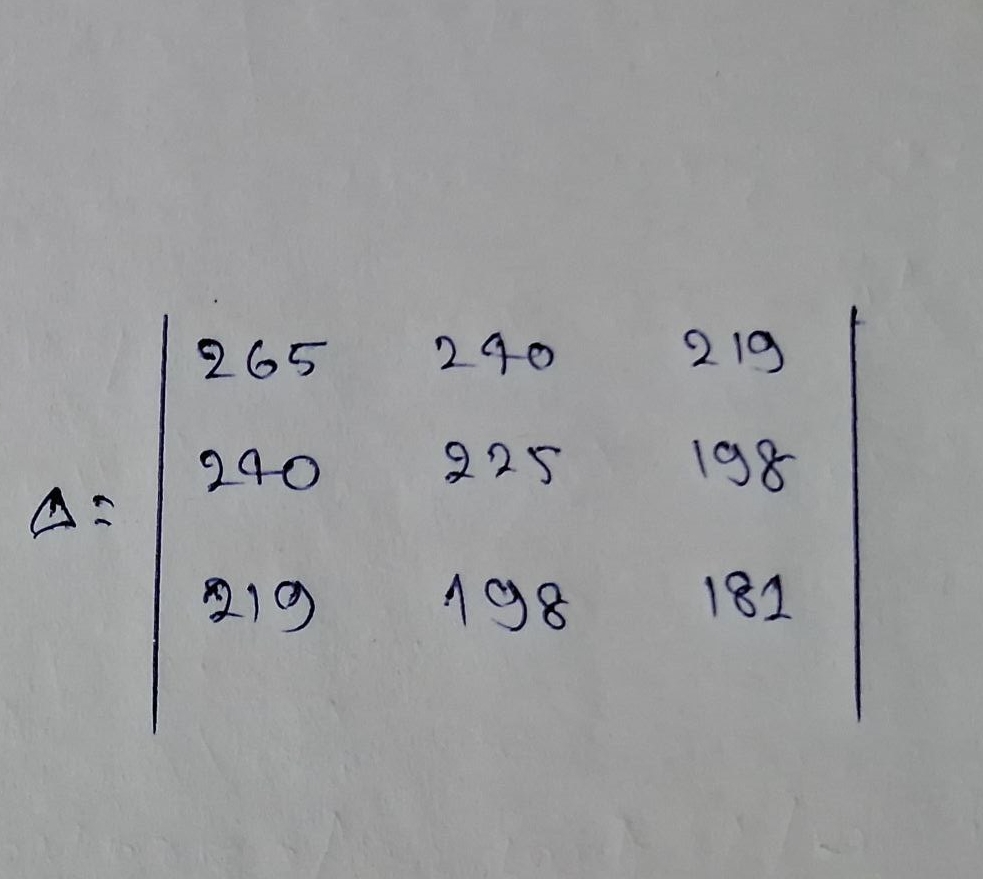 Δ=
265 240 219
240 225 198
219 198 181